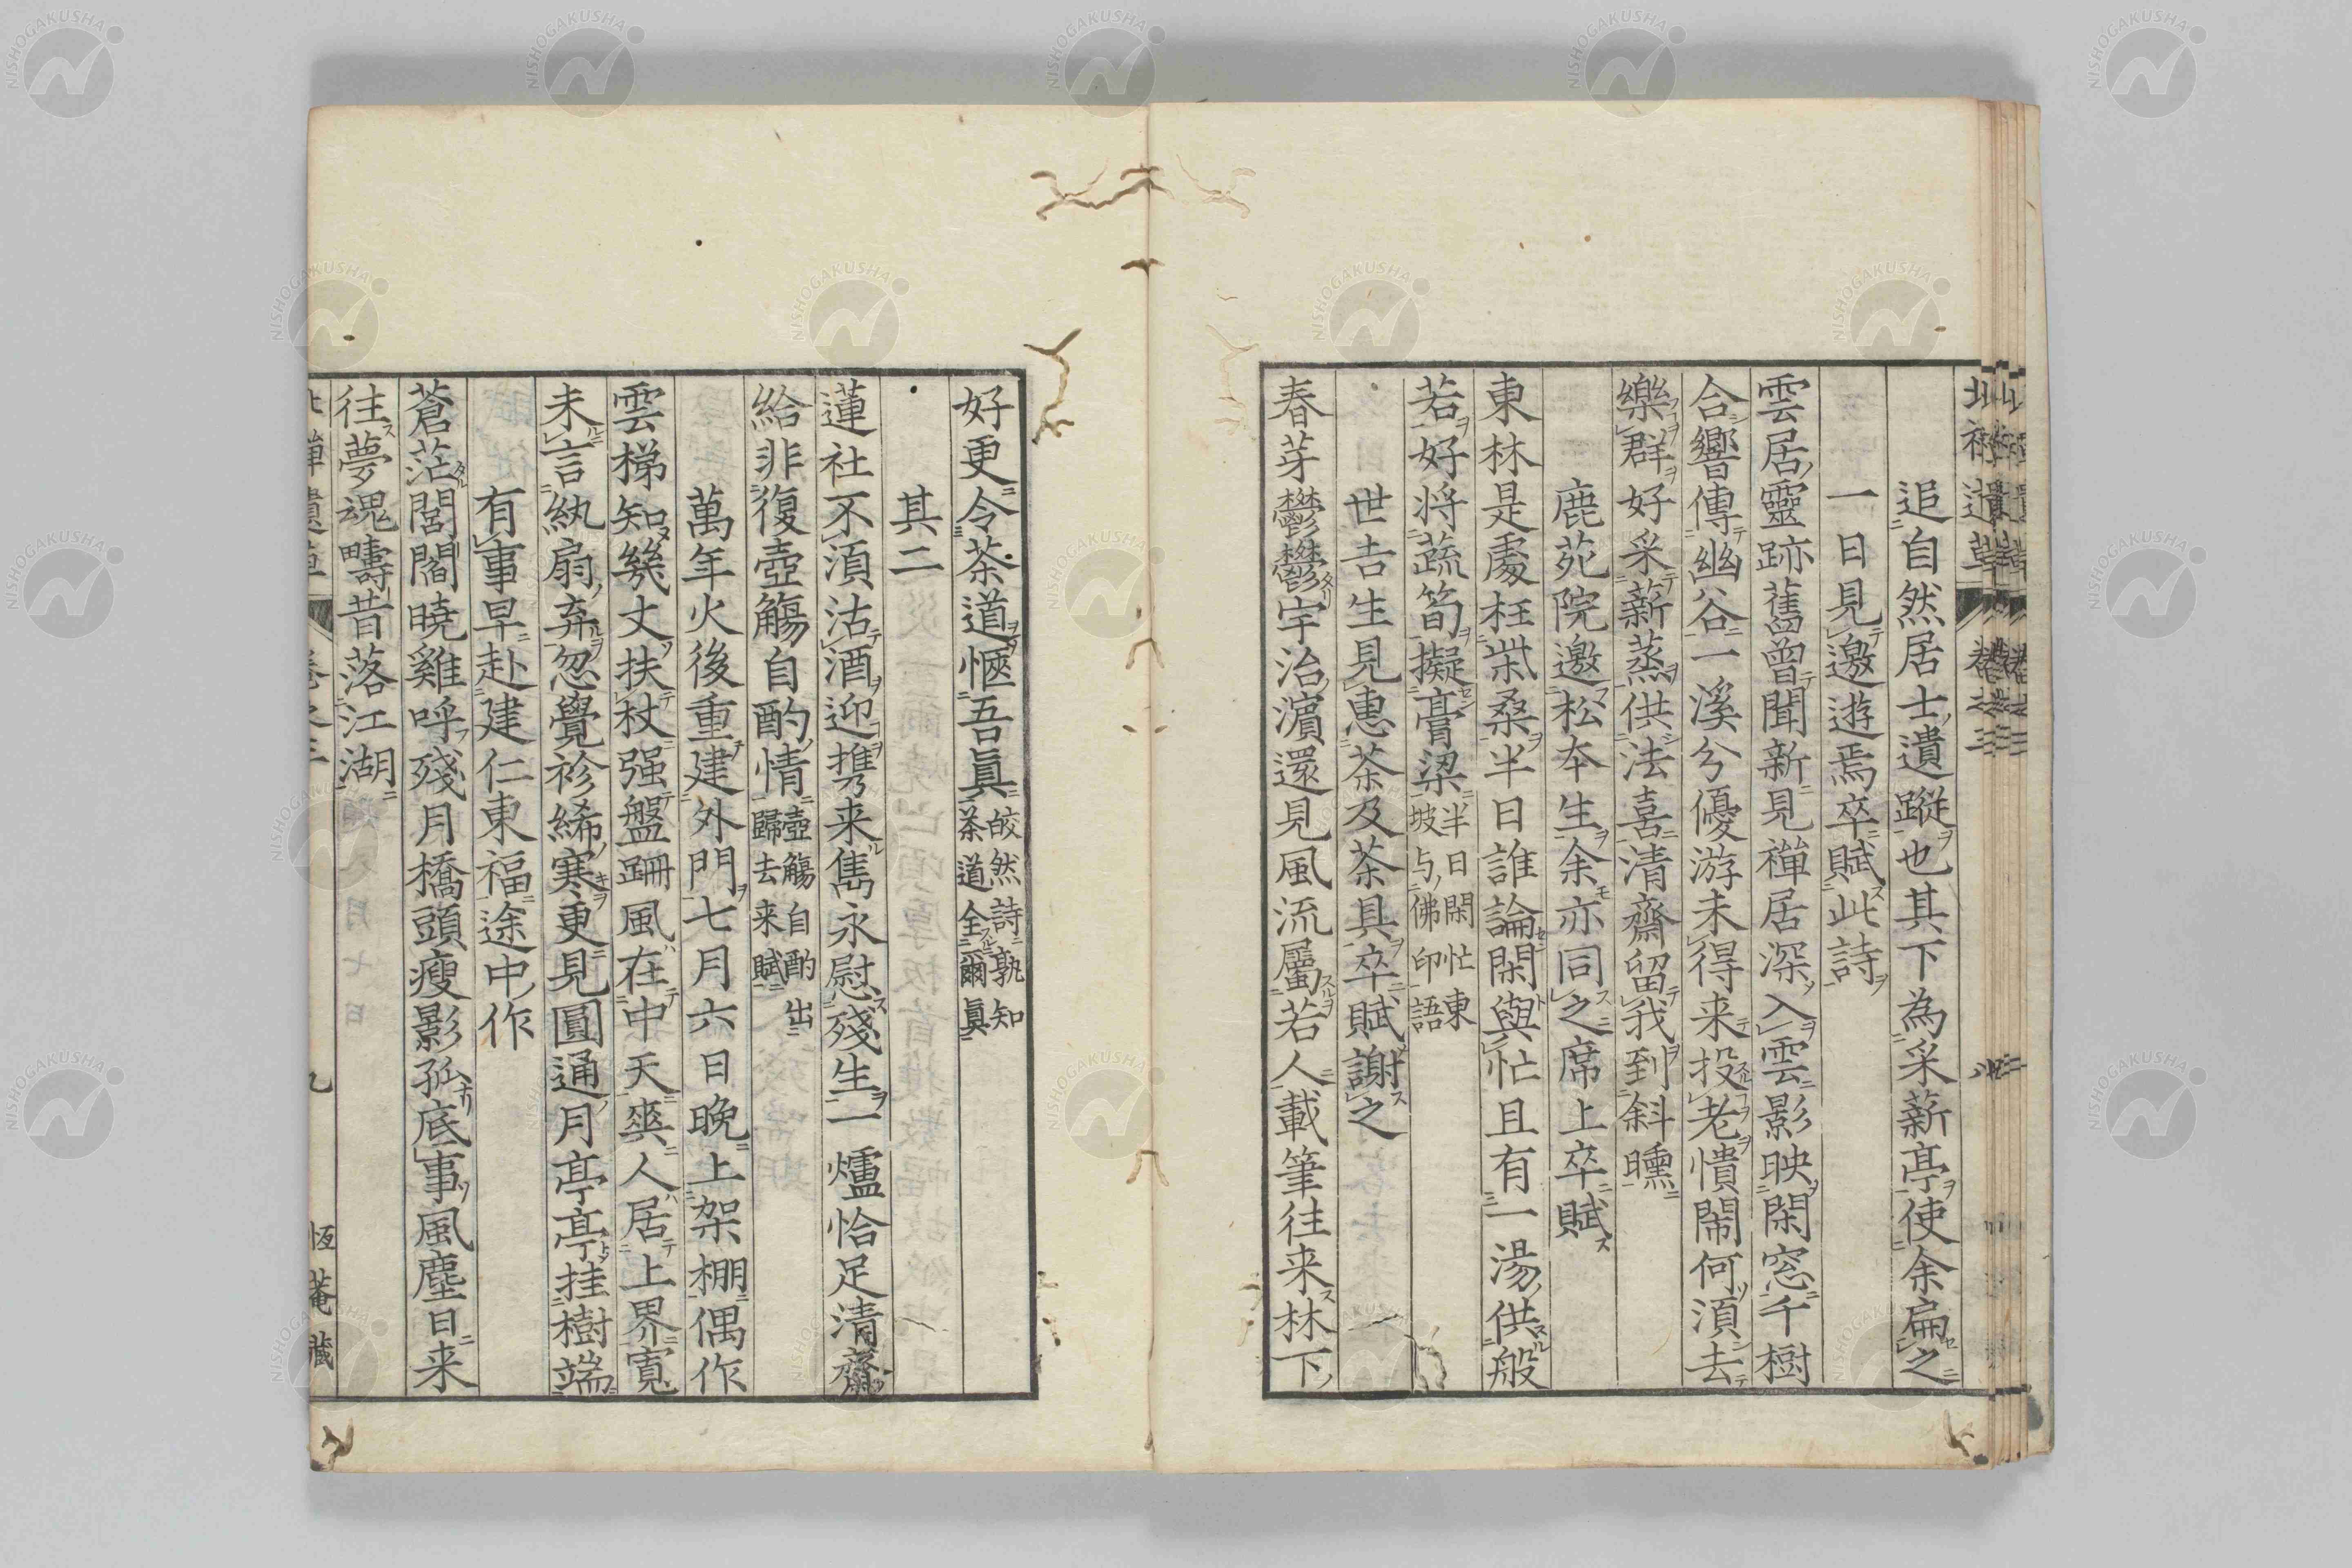 追自然居士遺蹤也其下為采薪亭使余扁之
一日見邀遊焉卒賦此詩
雲居靈跡舊曾聞新見禪居深入雲影映閑窓千樹
合響傳幽谷一溪分優游未得来投老憒閙何湏去
樂群好采薪蒸供法喜清齋留我到斜曛
鹿苑院邀松本生余亦同之席上卒賦
東林是處枉柴桑半日誰論閑與忙且有一湯供般
若好将蔬筍擬膏粱半日閑忙東
坡与佛印語
世吉生見惠茶及茶具卒賦謝之
春芽鬱鬱宇治濵還見風流屬若人載筆往来林下
好更令茶道愜吾眞皎然詩孰知
茶道全爾眞
其二
蓮社不湏沽酒迎携来雋永慰殘生一爐恰足清齋
給非復壺觴自酌情壺觴自酌出
歸去来賦
萬年火後重建外門七月六日晩上架棚偶作
雲梯知幾丈扶杖强盤跚風在中天爽人居上界寬
未言紈扇弃忽覺袗絺寒更見圓通月亭亭挂樹端
有事早赴建仁東福途中作
蒼茫閭閻曉雞呼殘月橋頭瘦影孤底事風塵日来
往夢魂疇昔落江湖
九
恆菴藏
NISHOGAKUSHA